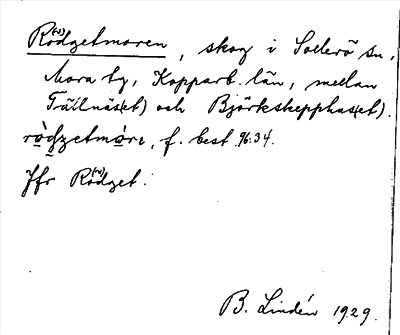 Rö(ⁿ)dgetmoren, skog i Sollerö sn,
Mora tg, Kopparb. län, mellan
Trällnäs(et) och Björkskepphus(et).
f. best. 96.34.
Jfr Rö(ⁿ)dget.
B. Lindén 1929.